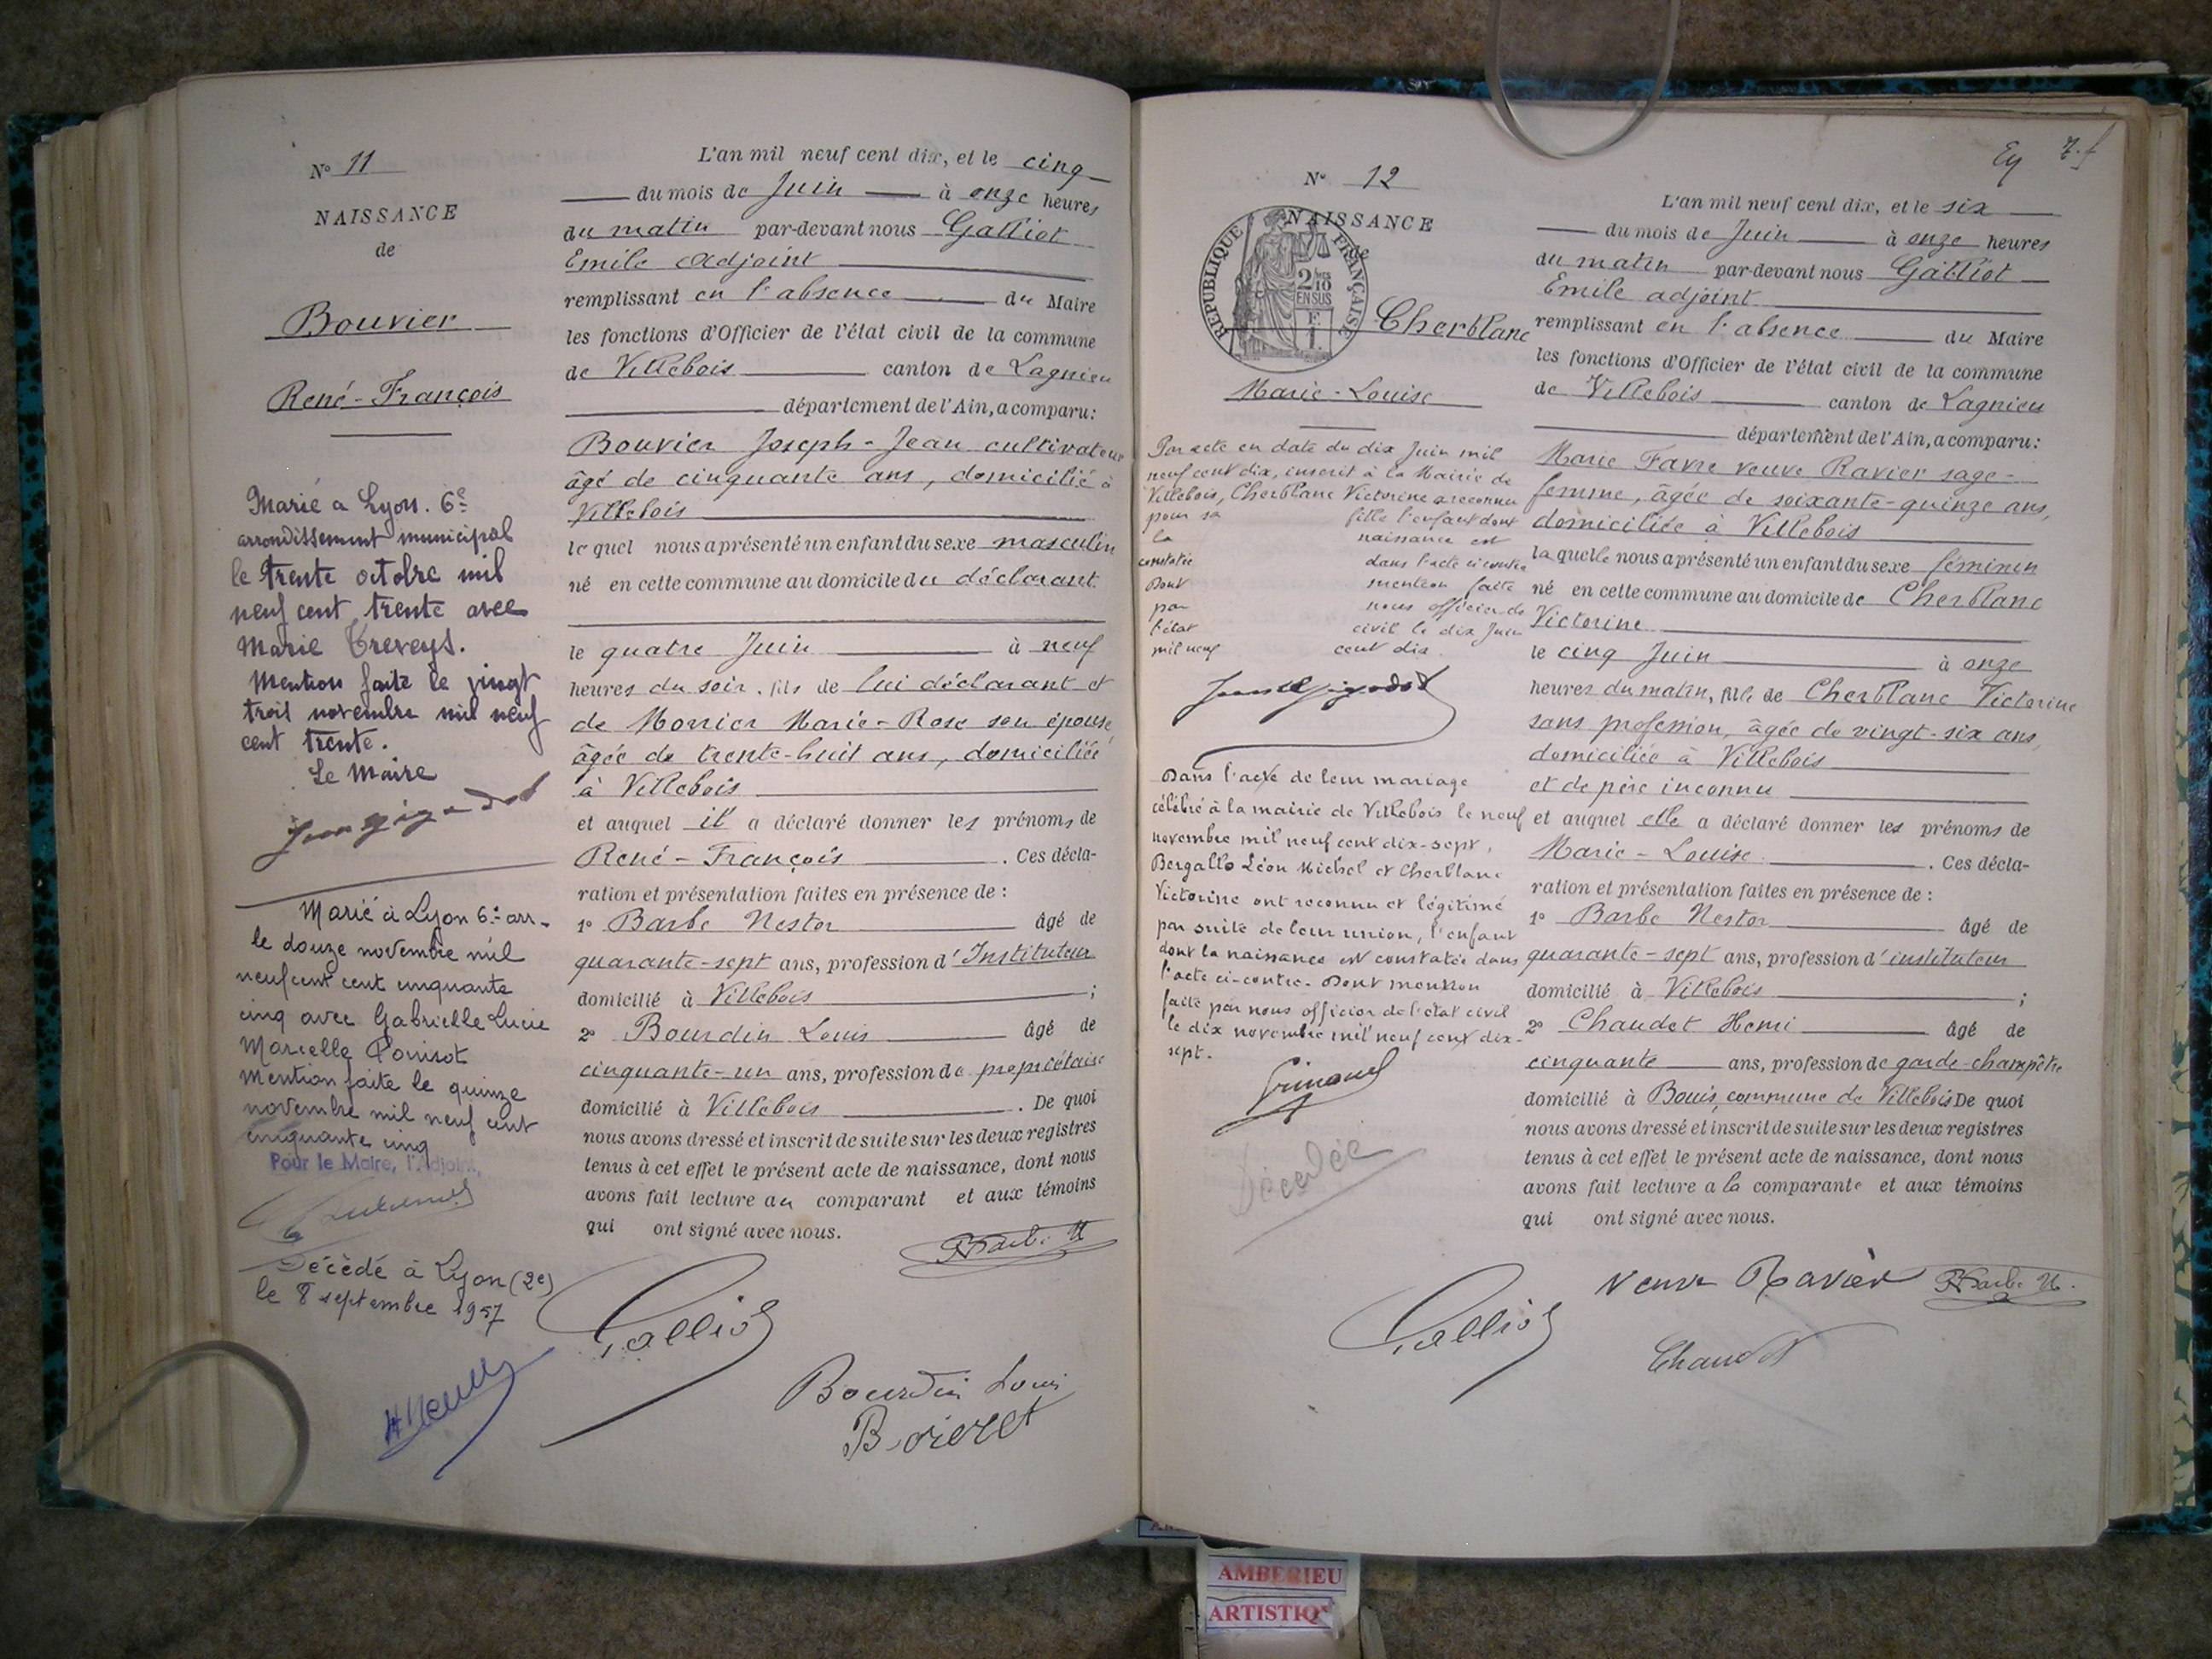 N° 11
NAISSANCE
de
Bouvier
René-François
Marié a Lyon. 6e
arrondissement municipal
le trente octobre mil
neuf cent trente avec
Marie Treveys.
Mention faite le vingt
trois novembre mil neuf
cent trente.
Le Maire
Marié à Lyon 6e arr.
le douze novembre mil
neuf cent cent cinquante
cinq avec Gabrielle Lucie
Marcelle
Mention faite le quinze
novembre mil neuf cent
cinquante cinq
Pour le Maire, l'Adjoint,
Décédé à Lyon (2e)
le 8 septembre 1957
L'an mil neuf cent dix, et le cinq
du mois de Juin à onze heures
du matin par-devant nous Galliot
Emile adjoint
remplissant en l'absence du Maire
les fonctions d'Officier de l'état civil de la commune
de Villebois canton de Lagnieu
département de l'Ain, a comparu:
Bouvier Joseph-Jean cultivateur
âgé de cinquante ans, domicilié à
Villebois
lequel nous a présenté un enfant du sexe masculin
né en cette commune au domicile du déclarant
le quatre Juin à neuf
heures du soir, fils de lui déclarant et
de Monier Marie-Rose son épouse,
âgée de trente-huit ans, domiciliée
à Villebois
et auquel il a déclaré donner les prénoms de
René-François. Ces décla-
ration et présentation faites en présence de :
1° Barbe Nestor âgé de
quarante-sept ans, profession d'Instituteur
domicilié à Villebois ;
2° Bourdin Louis âgé de
cinquante-un ans, profession de propriétaire
domicilié à Villebois. De quoi
nous avons dressé et inscrit de suite sur les deux registres
tenus à cet effet le présent acte de naissance, dont nous
avons fait lecture au comparant et aux témoins
qui ont signé avec nous.
Barbe N
Galliot
Bourdin Louis
Ey 7.f
N° 12
NAISSANCE
de
RÉPUBLIQUE FRANÇAISE
2/10
EN SUS
Cherblanc
Marie-Louise
Par acte en date du dix Juin mil
neuf cent dix, inscrit à la Mairie de
Villebois, Cherblanc Victorine a reconnu
pour sa fille l'enfant dont
la naissance est
constatée dans l'acte ci contre
Dont mention faite
par nous officier de
l'état civil le dix Juin
mil neuf cent dix
Dans l'acte de leur mariage
célébré à la mairie de Villebois le neuf
novembre mil neuf cent dix-sept,
Bergallo Léon Michel et Cherblanc
Victorine ont reconnu et légitimé
par suite de leur union, l'enfant
dont la naissance est constatée dans
l'acte ci-contre. Dont mention
faite par nous officier de l'état civil
le dix novembre mil neuf cent dix-
sept.
Décédée
L'an mil neuf cent dix, et le six
du mois de Juin à onze heures
du matin par-devant nous Galliot
Emile adjoint
remplissant en l'absence du Maire
les fonctions d'Officier de l'état civil de la commune
de Villebois canton de Lagnieu
département de l'Ain, a comparu:
Marie Favre veuve Ravier sage-
femme, âgée de soixante-quinze ans,
domiciliée à Villebois
laquelle nous a présenté un enfant du sexe féminin
né en cette commune au domicile de Cherblanc
Victorine
le cinq Juin à onze
heures du matin, fille de Cherblanc Victorine
sans profession, âgée de vingt-six ans,
domiciliée à Villebois
et de père inconnu
et auquel elle a déclaré donner les prénoms de
Marie-Louise. Ces décla-
ration et présentation faites en présence de :
1° Barbe Nestor âgé de
quarante-sept ans, profession d'instituteur
domicilié à Villebois ;
2° Chaudet Henri âgé de
cinquante ans, profession de garde-champêtre
domicilié à Bouis, commune de Villebois De quoi
nous avons dressé et inscrit de suite sur les deux registres
tenus à cet effet le présent acte de naissance, dont nous
avons fait lecture a la comparante et aux témoins
qui ont signé avec nous.
Veuve Ravier
Barbe N.
Galliot
Chaudet
AMBERIEU
ARTISTIQ